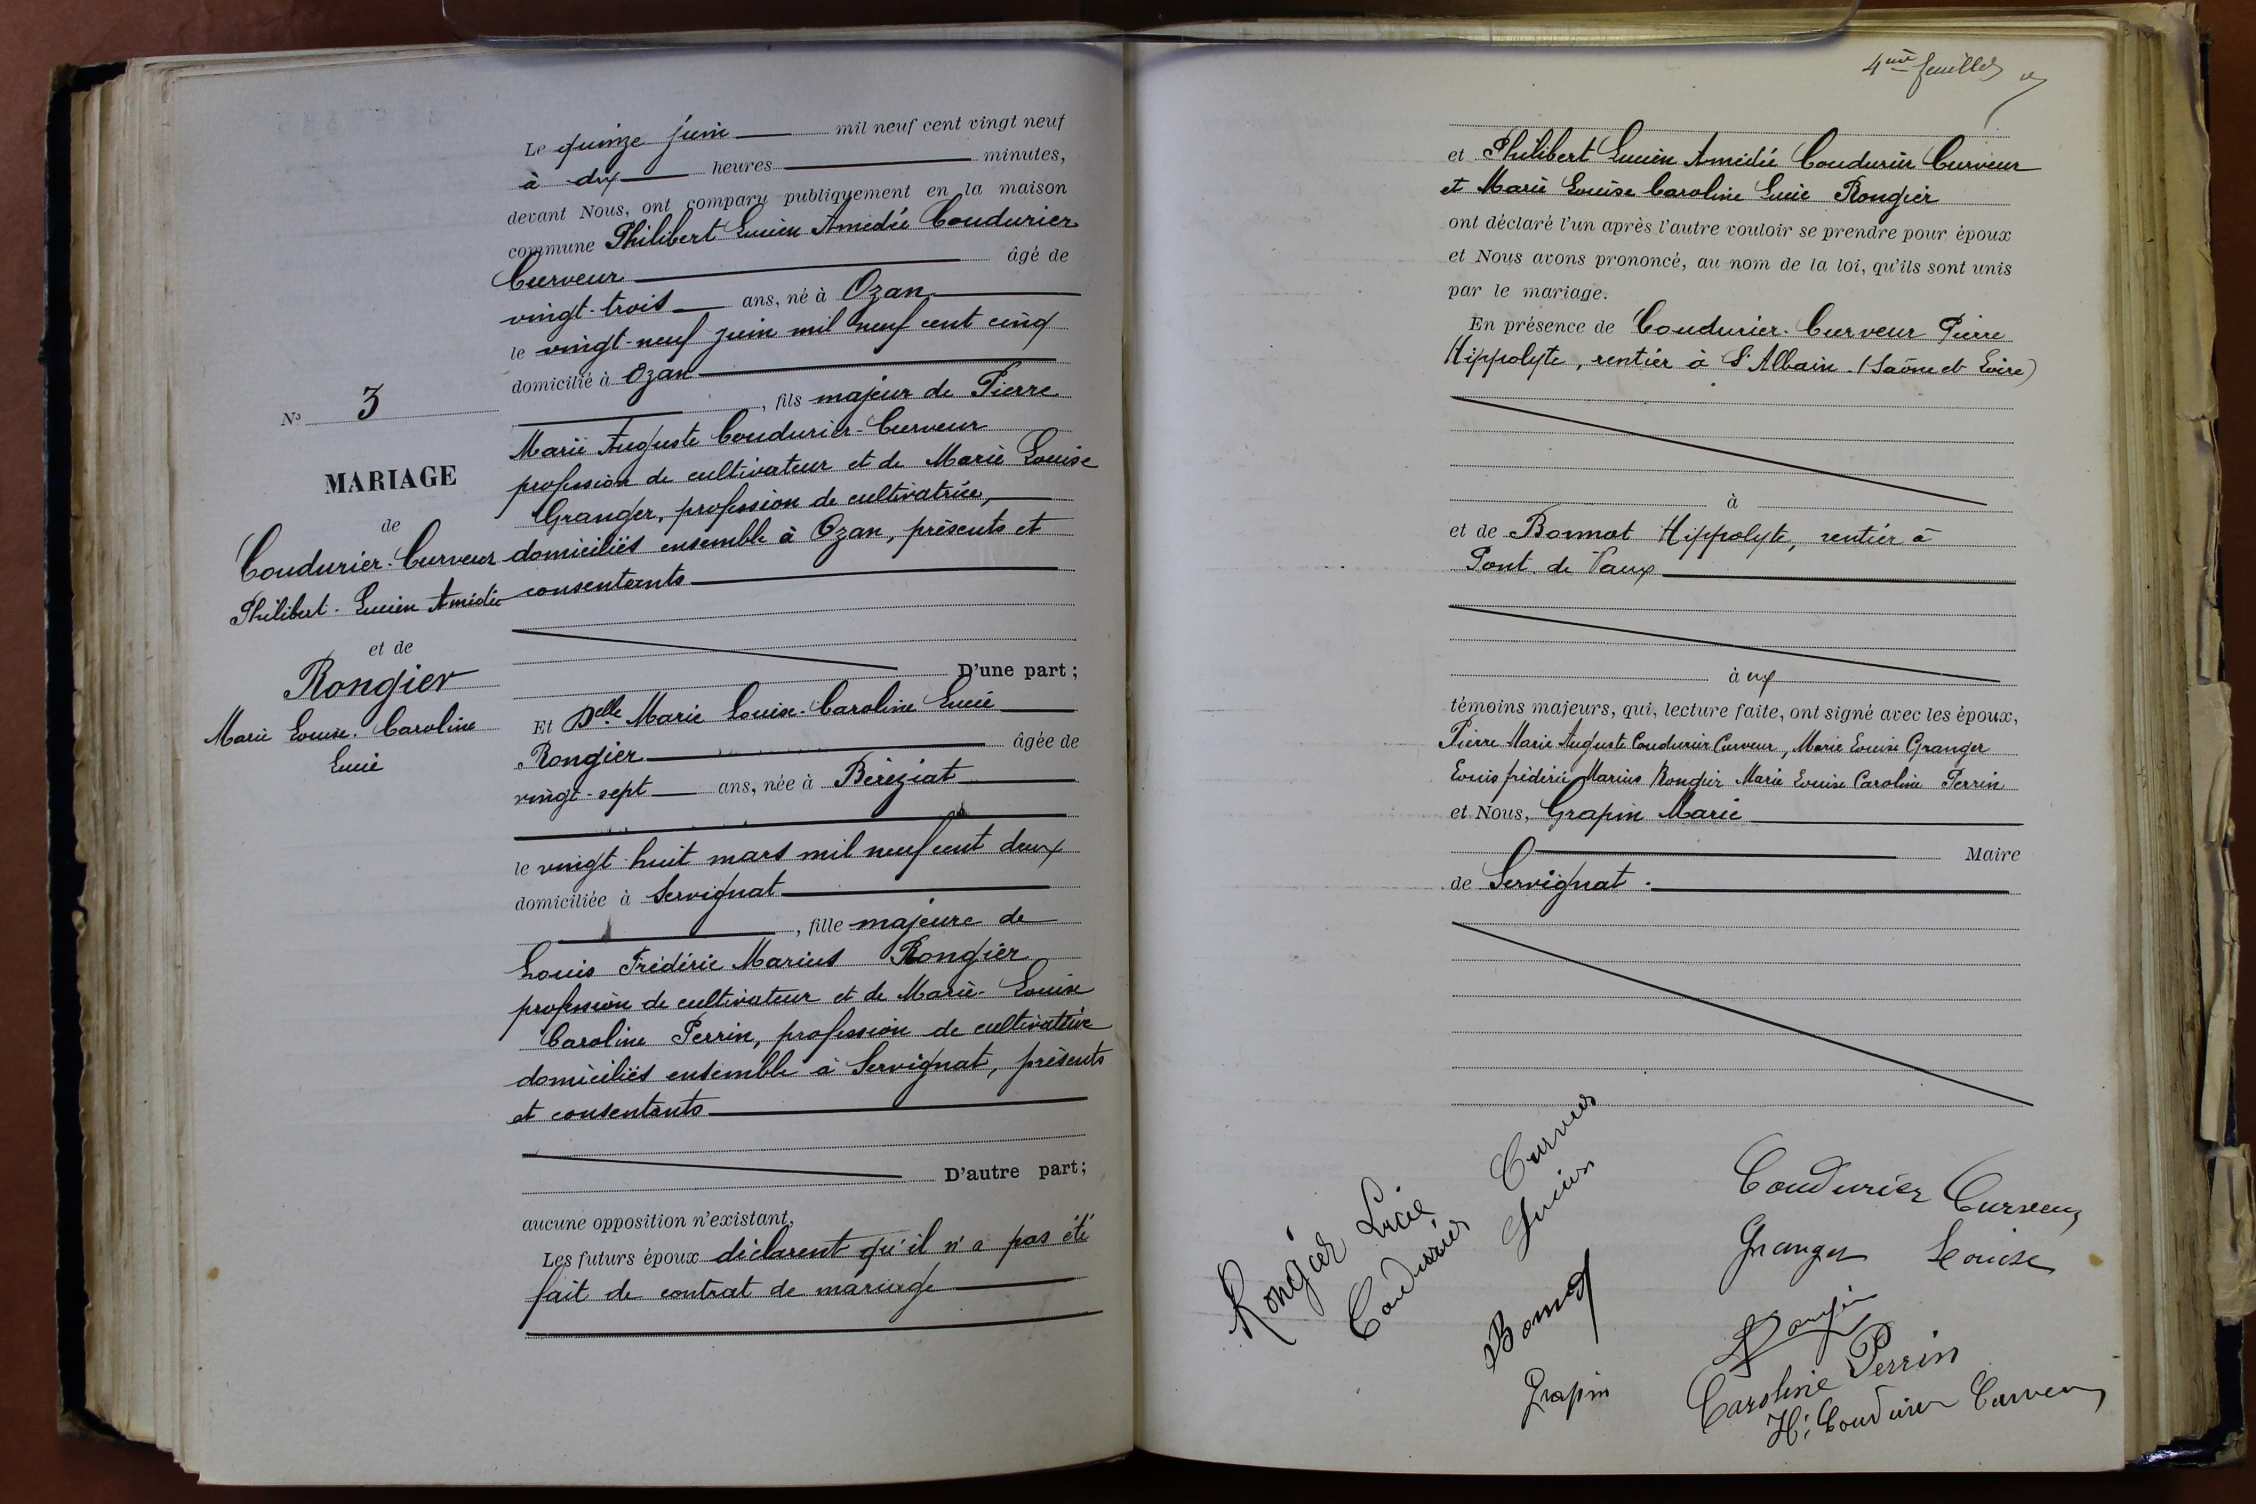 Le quinze juin mil neuf cent vingt neuf
à dix heures minutes,
devant Nous, ont comparu publiquement en la maison
commune Philibert Lucien Amédée Coudurier
Curveur âgé de
vingt-trois ans, né à Ozan
le vingt-neuf juin mil neuf cent cinq
domicilié à Ozan
, fils majeur de Pierre
Marie Auguste Coudurier-Curveur
profession de cultivateur et de Marie Louise
Granger, profession de cultivatrice,
domiciliés ensemble à Ozan, présents et
consentants
D'une part ;
Et Delle Marie Louise-Caroline Lucie
Rongier âgée de
vingt-sept ans, née à Béréziat
le vingt-huit mars mil neuf cent deux
domiciliée à Servignat
, fille majeure de
Louis Frédéric Marius Rongier
profession de cultivateur et de Marie-Louise
Caroline Perrin, profession de cultivatrice
domiciliés ensemble à Servignat, présents
et consentants
D'autre part ;
aucune opposition n'existant,
Les futurs époux déclarent qu'il n'a pas été
fait de contrat de mariage
No 3
MARIAGE
de
Coudurier-Curveur
Philibert-Lucien Amédée
et de
Rongier
Marie Louise-Caroline
Lucie
4me feuillet
et Philibert Lucien Amédée Coudurier Curveur
et Marie Louise Caroline Lucie Rongier
ont déclaré l'un après l'autre vouloir se prendre pour époux
et Nous avons prononcé, au nom de la loi, qu'ils sont unis
par le mariage.
En présence de Coudurier-Curveur Pierre
Hippolyte, rentier à St Albain (Saône et Loire)
à
et de Bonnat Hippolyte, rentier à
Pont de Vaux
à ux
témoins majeurs, qui, lecture faite, ont signé avec les époux,
Pierre Marie Auguste Coudurier Curveur, Marie Louise Granger
Louis frédéric Marius Rongier Marie Louise Caroline Perrin
et Nous, Grapin Marie
Maire
de Servignat.
Rongier Lucie
Coudurier Curveur
Lucien
Bonnat
Grapin
Coudurier Curveur
Granger Louise
Rongier
Caroline Perrin
H. Coudurier Curveur